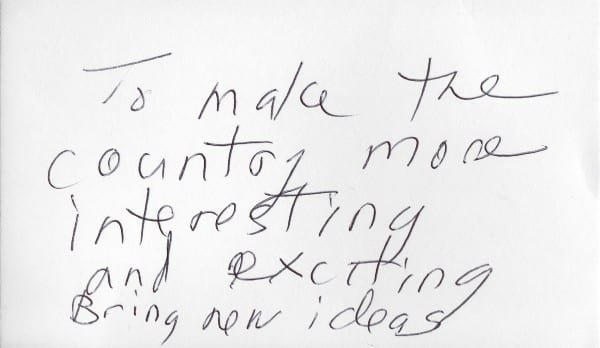 To make the
country more
interesting
and exciting
Bring new ideas